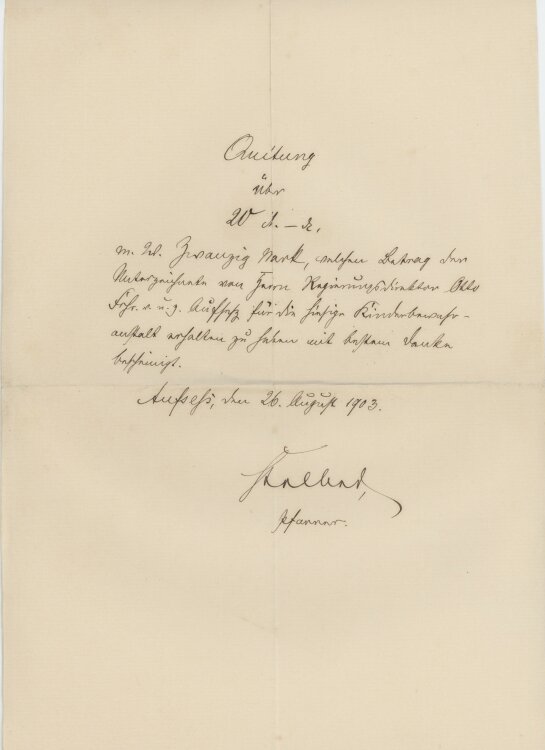 Quittung
über
20 M. – d.
m. W. Zwanzig Mark, welchen Betrag der
Unterzeichnete von Herrn Regierungsdirektor Otto
Frhr. v. u. z. Aufseß für die hiesige Kinderbewahr-
anstalt erhalten zu haben mit bestem Danke
bescheinigt.
Aufseß, den 26. August 1903.
Pfarrer.